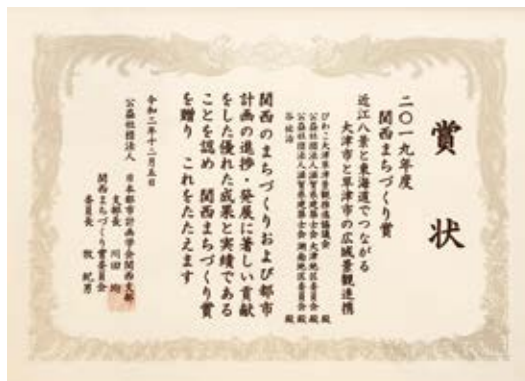 賞状
二〇一九年度
関西まちづくり賞
近江八景と東海道でつながる
大津市と草津市の広域景観連携
びわこ大津草津景観推進協議会 殿
公益社団法人滋賀県建築士会 大津地区委員会 殿
公益社団法人滋賀県建築士会 湖南地区委員会 殿
谷祐治 殿
関西のまちづくりおよび都市
計画の進捗・発展に著しい貢献
をした優れた成果と実績である
ことを認め 関西まちづくり賞
を贈り これをたたえます
令和二年十二月五日
公益社団法人 日本都市計画学会関西支部
支部長 川田 均
関西まちづくり賞委員会
委員長 牧 紀男